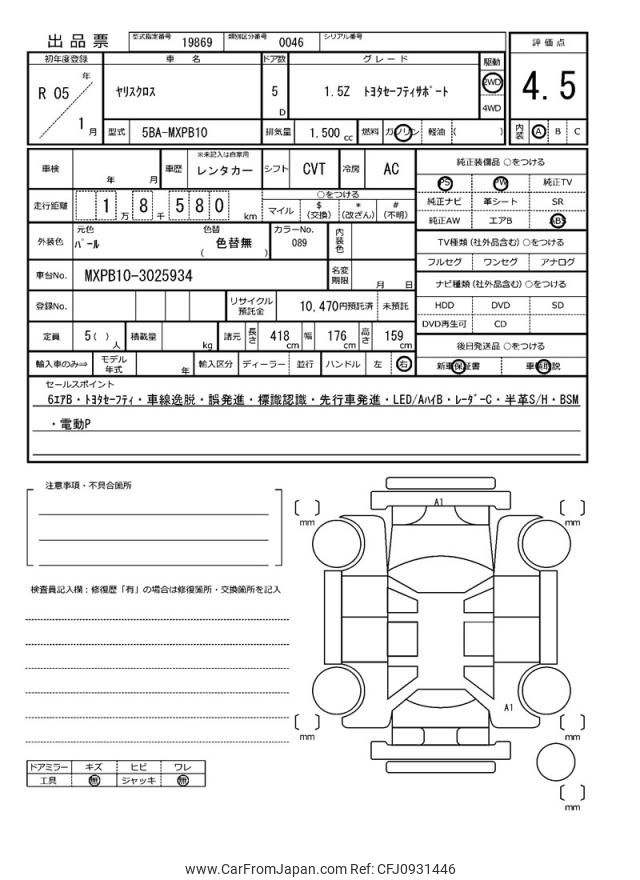 出品票 型式指定番号 19869 類別区分番号 0046 シリアル番号
初年度登録 車 名 ドア数 グレード 駆動 評価点
R 05 年 1 月 ヤリスクロス 5 D 1.5Z トヨタセーフティサポート 2WD 4WD 4.5
型式 5BA-MXPB10 排気量 1,500 cc 燃料 ガソリン 軽油 ( ) 内装 A B C
車検 年 月 車歴 ※未記入は自家用 レンタカー シフト CVT 冷房 AC 純正装備品 ○をつける
PS PW 純正TV
走行距離 1 万 8 千 5 8 0 km ○をつける 純正ナビ 革シート SR
マイル $ (交換) * (改ざん) # (不明) 純正AW エアB ABS
外装色 元色 パール 色替 色替無 ( ) カラーNo. 089 内装色 TV種類 (社外品含む) ○をつける
フルセグ ワンセグ アナログ
車台No. MXPB10-3025934 名変期限 月 日 ナビ種類 (社外品含む) ○をつける
登録No. リサイクル預託金 10,470円預託済 未預託 HDD DVD SD
DVD再生可 CD
定員 5( ) 人 積載量 kg 諸元 長さ 418 cm 幅 176 cm 高さ 159 cm 後日発送品 ○をつける
輸入車のみ⇒ モデル年式 年 輸入区分 ディーラー 並行 ハンドル 左 右 新車保証書 車輌取説
セールスポイント
6エアB・トヨタセーフティ・車線逸脱・誤発進・標識認識・先行車発進・LED/AハイB・レーダーC・半革S/H・BSM
・電動P
注意事項・不具合箇所
検査員記入欄:修復歴「有」の場合は修復箇所・交換箇所を記入
A1
A1
mm
mm
mm
mm
mm
ドアミラー キズ ヒビ ワレ
工具 無 ジャッキ 無
www.CarFromJapan.com Ref: CFJ0931446